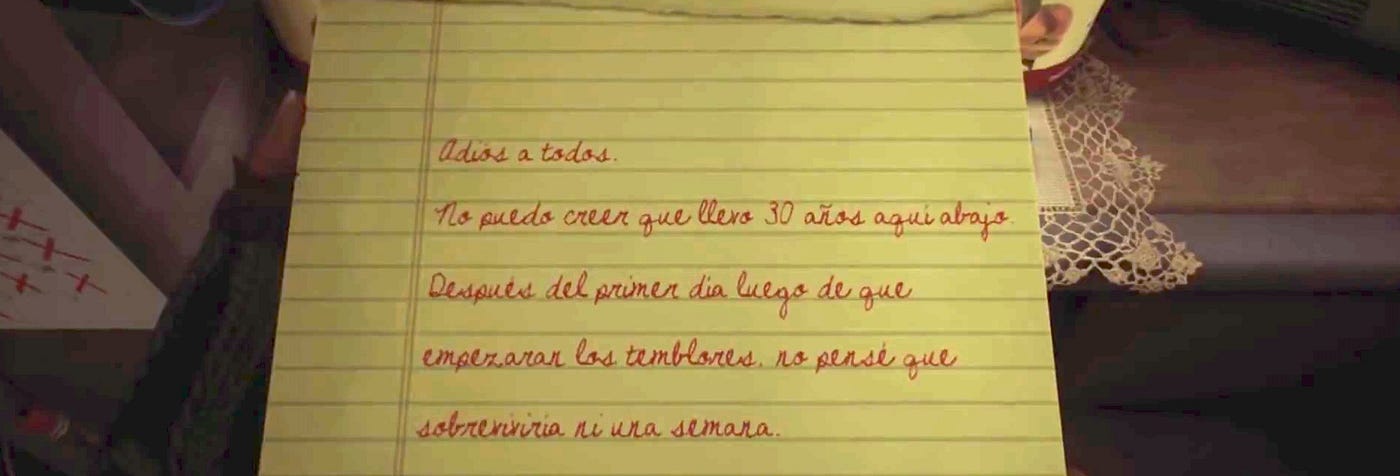 Adios a todos.
No puedo creer que llevo 30 años aquí abajo.
Después del primer día luego de que
empezaran los temblores, no pensé que
sobreviviría ni una semana.